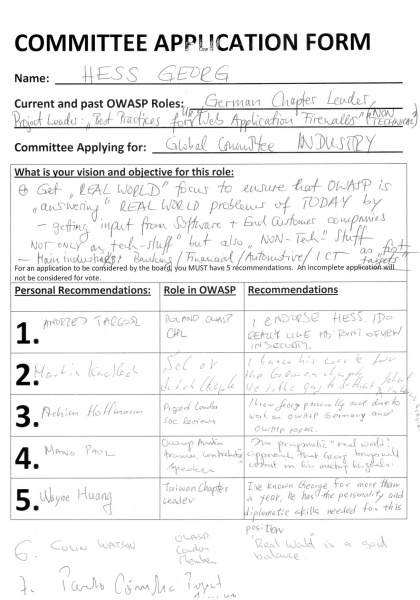 COMMITTEE APPLICATION FORM
Name: HESS GEORG
Current and past OWASP Roles: German Chapter Leader,
Project Leader: „Best Practices for Use of Web Application Firewalls" (NON TECHNICAL)
Committee Applying for: Global Committee INDUSTRY
What is your vision and objective for this role:
Get „REAL WORLD" focus to ensure that OWASP is
„answering" REAL WORLD problems of TODAY by
- getting input from Software + End Customer companies
NOT ONLY on „tech-stuff" but also „NON-Tech" Stuff
- Main industries: Banking / Financial / Automotive / ICT as „first targets"
For an application to be considered by the board, you MUST have 5 recommendations. An incomplete application will
not be considered for vote.
Personal Recommendations: Role in OWASP Recommendations
1. ANDRZEJ TARGOSZ POLAND OWASP CHL I ENDORSE HESS. I DO
REALLY LIKE HIS POINT OF VIEW
IN SECURITY.
2. Martin Knobloch Dutch Chapter I know his work for
the German chapter
He is the guy to
3. Achim Hoffmann Project Leader
SoC Reviews
I know Georg personally and due to
work on OWASP Germany and
OWASP papers.
4. MANO PAUL OWASP Austin
trainer, contributor,
speaker
The pragmatic "real world"
approach that Georg brings will
commit on his meeting
5. Wayne Huang Taiwan Chapter
Leader
I've known George for more than
a year. He has the personality and
diplomatic skills needed for this
position
6. COLIN WATSON OWASP
London
Member
"Real World" is a good
balance
7. Paulo Coimbra Project